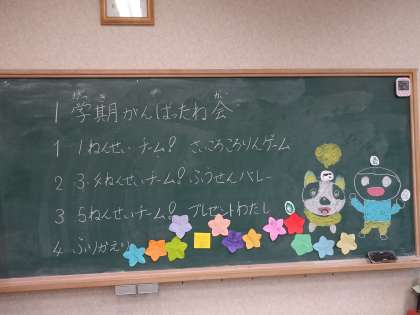 1学期がんばったね会
1 1ねんせいチーム? さいころころりんゲーム
2 3・4ねんせいチーム? ふうせんバレー
3 5ねんせいチーム? プレゼントわたし
4 ふりかえり